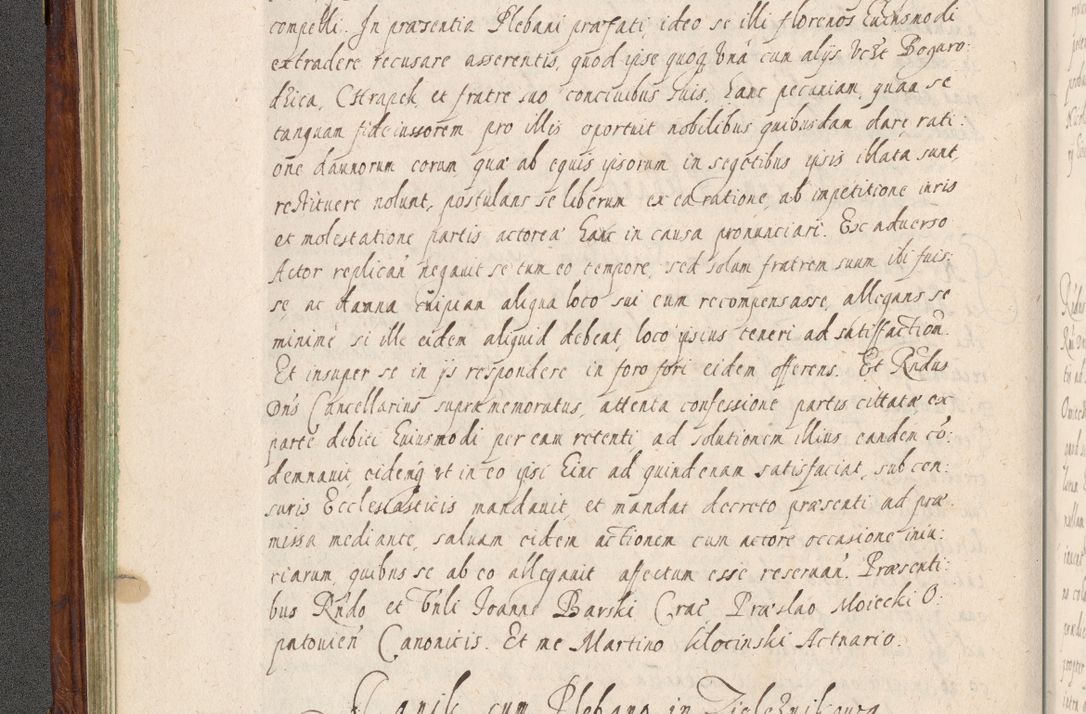 compelli. In præsentia Plebani præfati, ideo se illi florenos huiusmodi
extradere recusare asserentis, quod ipse quoq vna cum alijs vczt Boguro:
dzica, Chrapek, et fratre suo conciuibus suis, hanc pecuniam, quam se
tanquam fideiussorem pro illis oportuit nobilibus quibusdam dare rati:
one damnorum eorum quæ ab equis ipsorum in segetibus ipsis illata sunt,
restituere nolunt, postulans se liberum ex ea ratione, ab impetitione iuris
et molestatione partis actoreæ hanc in causa pronunciari. Ex aduerso
Actor replican negauit se tum eo tempore, sed solum fratrem suum ibi fuis:
se, ac damna cuipiam aliqua loco sui eum recompensasse, allegans se
minime si ille eidem aliquid debeat, loco ipsius teneri ad satisfaction.
Et insuper se in ijs respondere in foro fori eidem offerens. Et Rndus
Dns Cancellarius supramemoratus, attenta confessione partis cittatæ ex
parte debiti huiusmodi per eam retenti, ad solutionem illius eandem co:
demnauit, eidemq vt in eo ipsi hinc ad quindenam satisfaciat, sub cen:
suris Ecclesiasticis mandauit, et mandat decreto præsenti ad præ:
missa mediante, saluam eidem actionem cum actore occasione iniu:
riarum, quibus se ab eo allegauit affectum esse reseruan. Præsenti:
bus Rndo et Vnli Joanne Barski Crac Præslao Moiecki O:
patouien Canonicis. Et me Martino Klocinski Actuario.
cum Plebano in Zieleznikowa